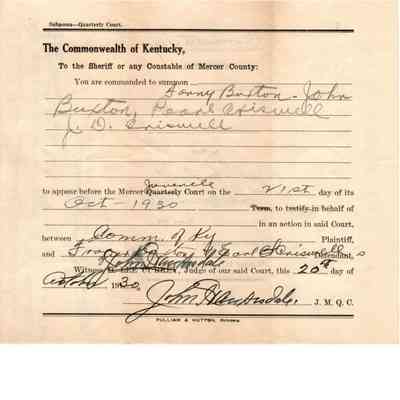 Subpoena—Quarterly Court.
The Commonwealth of Kentucky,
To the Sheriff or any Constable of Mercer County:
You are commanded to summon
Buxton - John
Buxton, Pearl Criswell
J. D. Criswell
Juvenile
to appear before the Mercer Quarterly Court on the 21st day of its
Oct - 1930 Term, to testify in behalf of
in an action in said Court,
between Comm. of Ky Plaintiff,
and Criswell Defendant, s
Witness G. LEE CURREN, Judge of our said Court, this 20th day of
1930.
J. M. Q. C.
PULLIAM & HUTTON, Printers